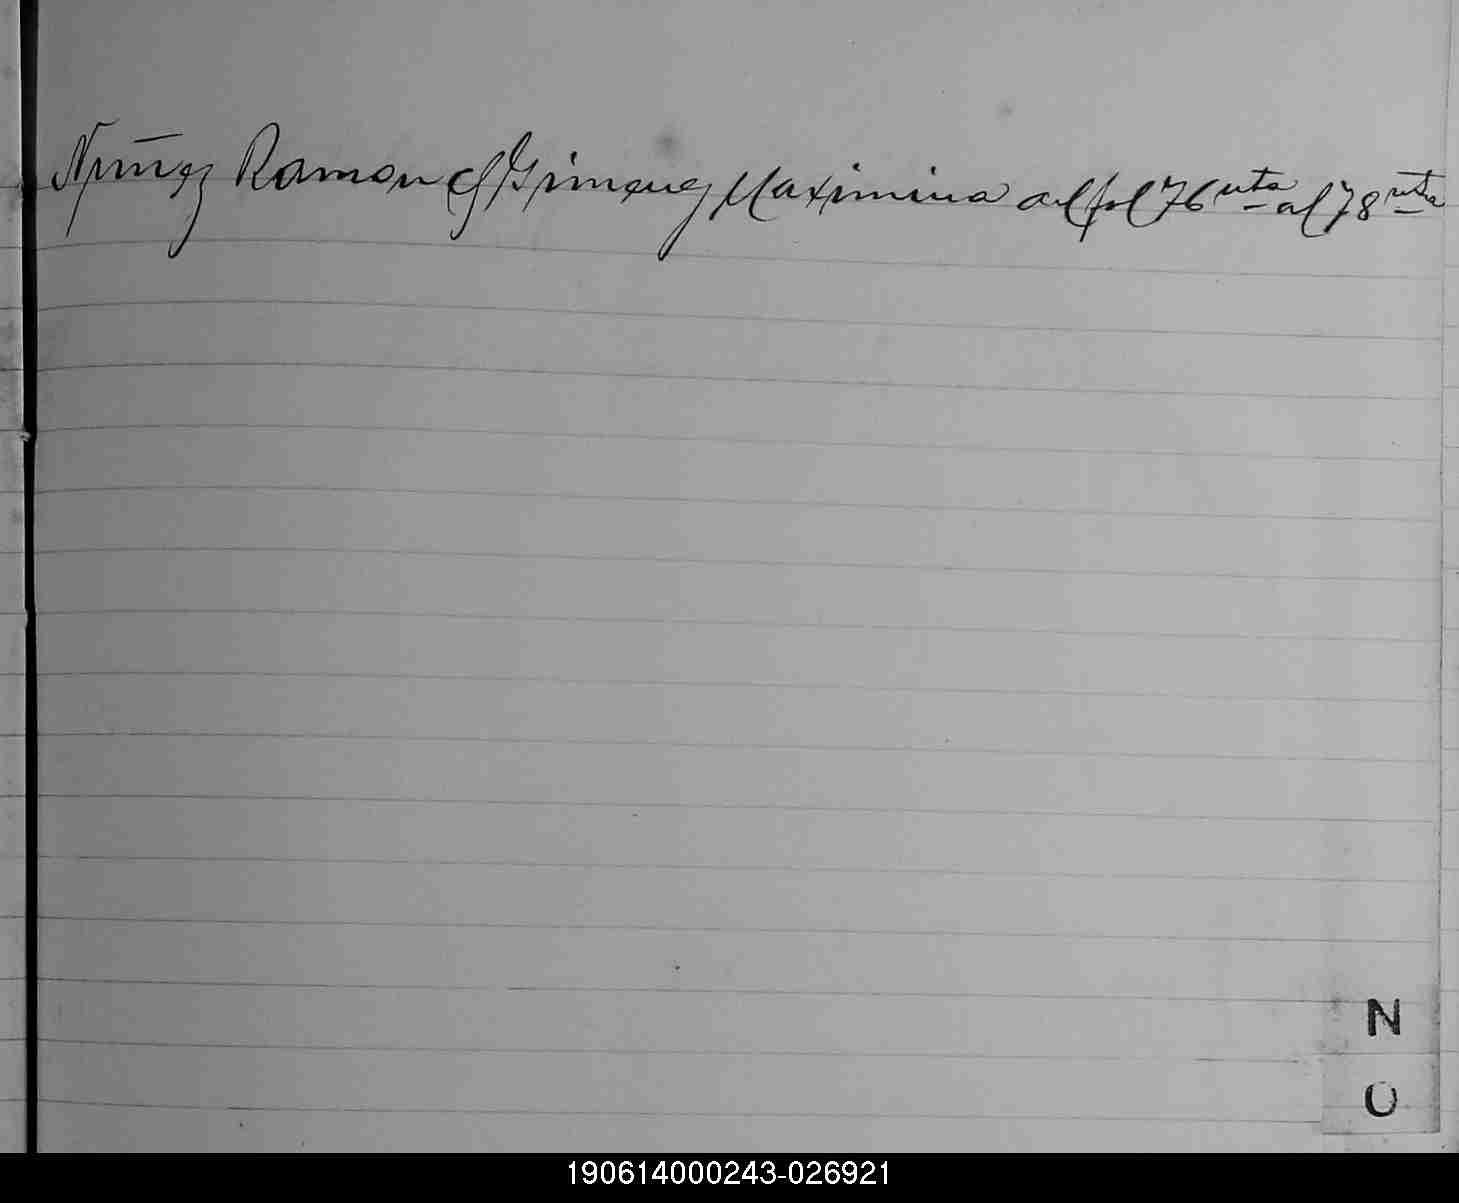 Nuñez Ramon c/ Gimenez Maximina al fol 76 vta al 78 vta
N
O
190614000243-026921